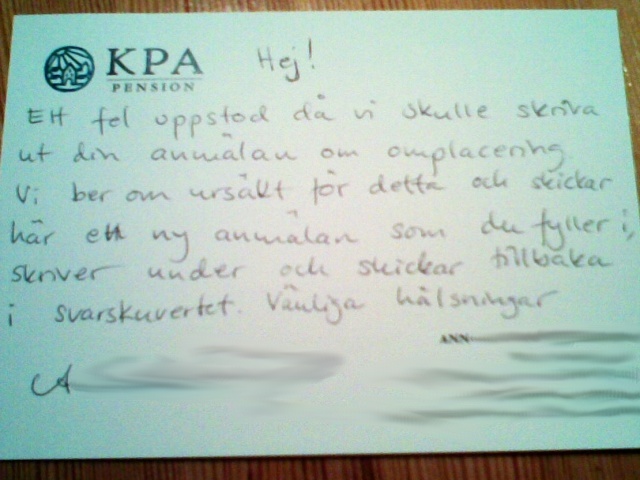 KPA
PENSION
Hej!
Ett fel uppstod då vi skulle skriva
ut din anmälan om omplacering
Vi ber om ursäkt för detta och skickar
här ett ny anmälan som du fyller i,
skriver under och skickar tillbaka
i svarskuvertet. Vänliga hälsningar
ANN
A